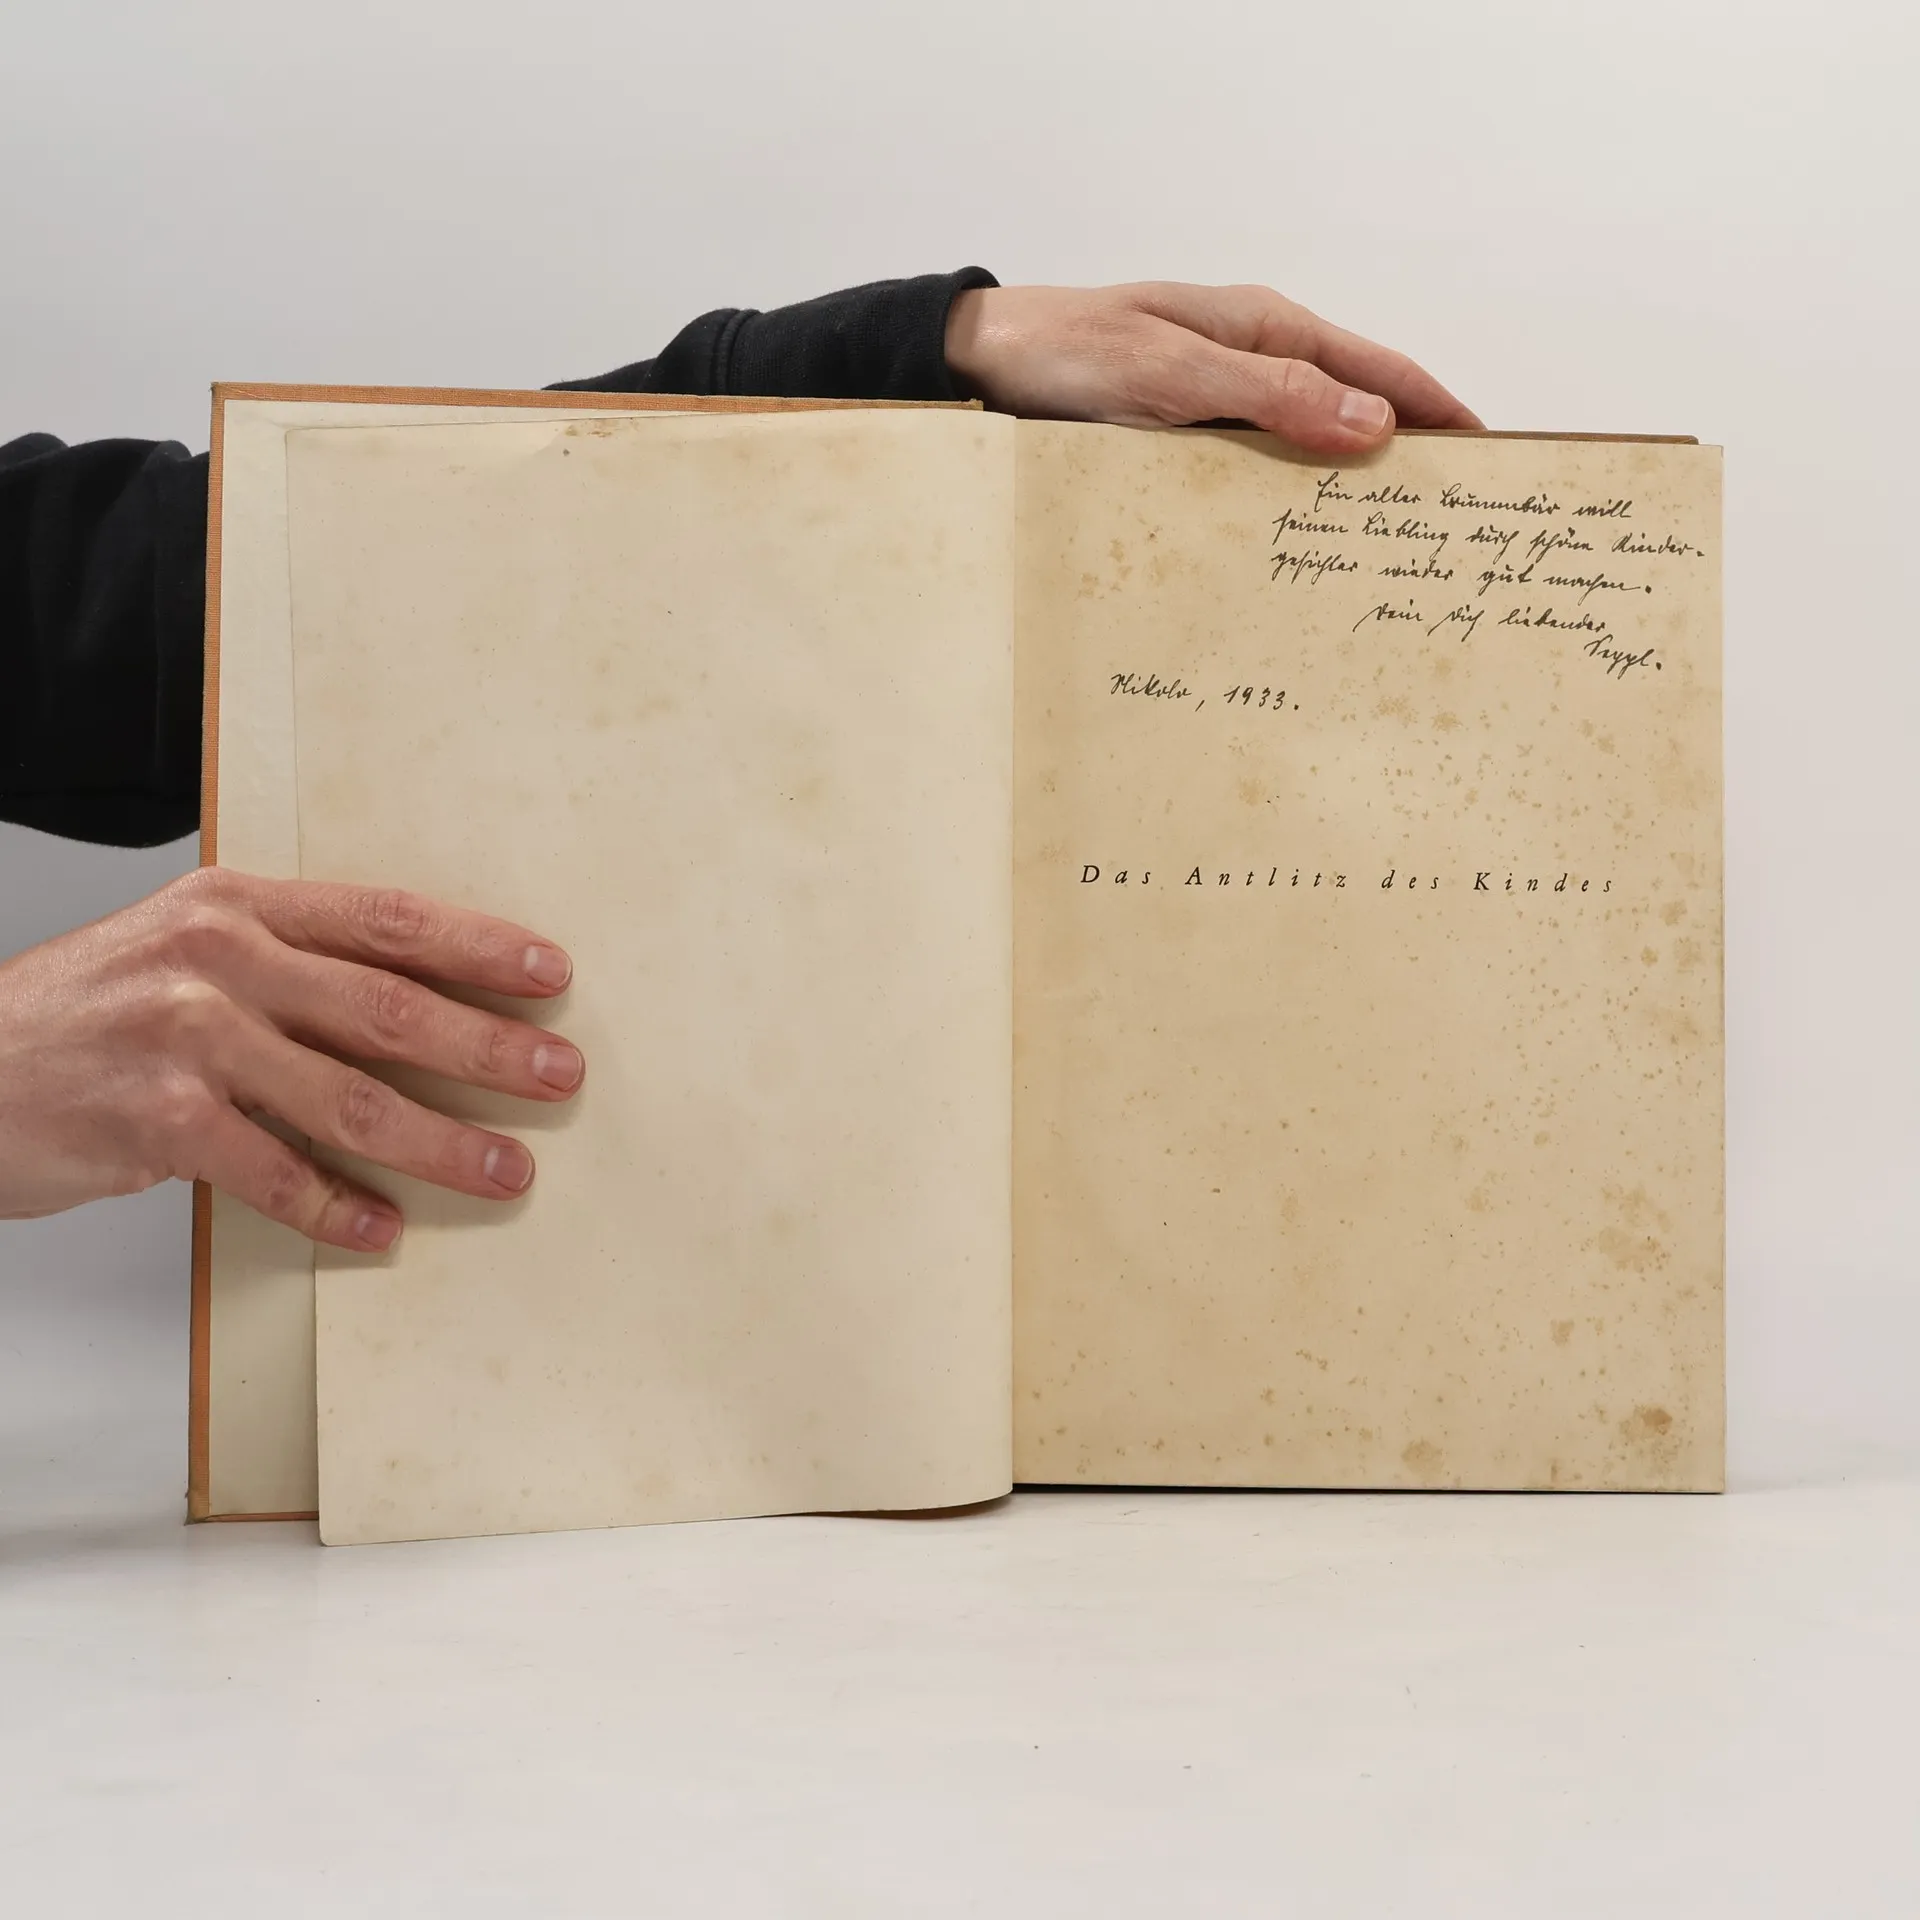 Ein alter Brummbär will
seinen Liebling durch schöne Kinder-
gesichter wieder gut machen.
Dein Dich liebender
Seppl.
Nikolo, 1933.
Das Antlitz des Kindes